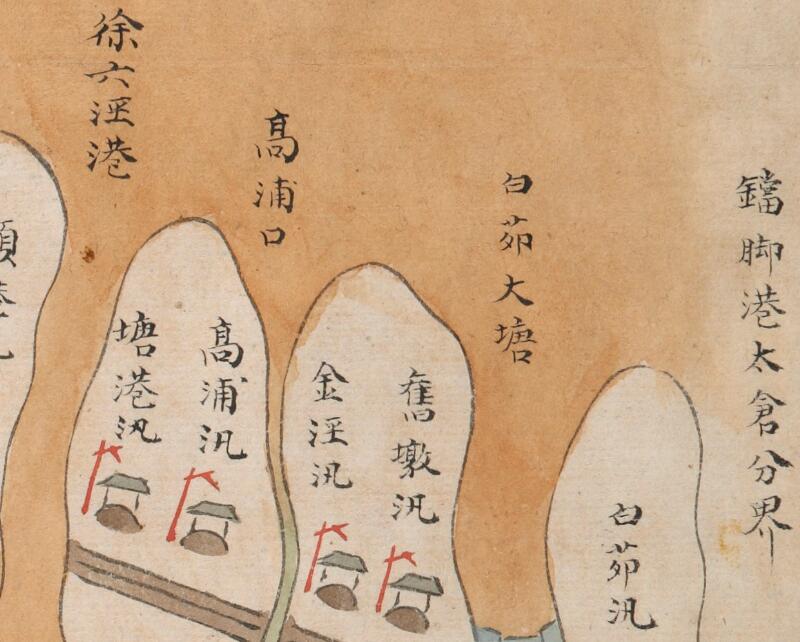 鐺脚港太倉分界
白茆汛
白茆大塘
舊墩汛
金涇汛
高浦口
高浦汛
塘港汛
徐六涇港